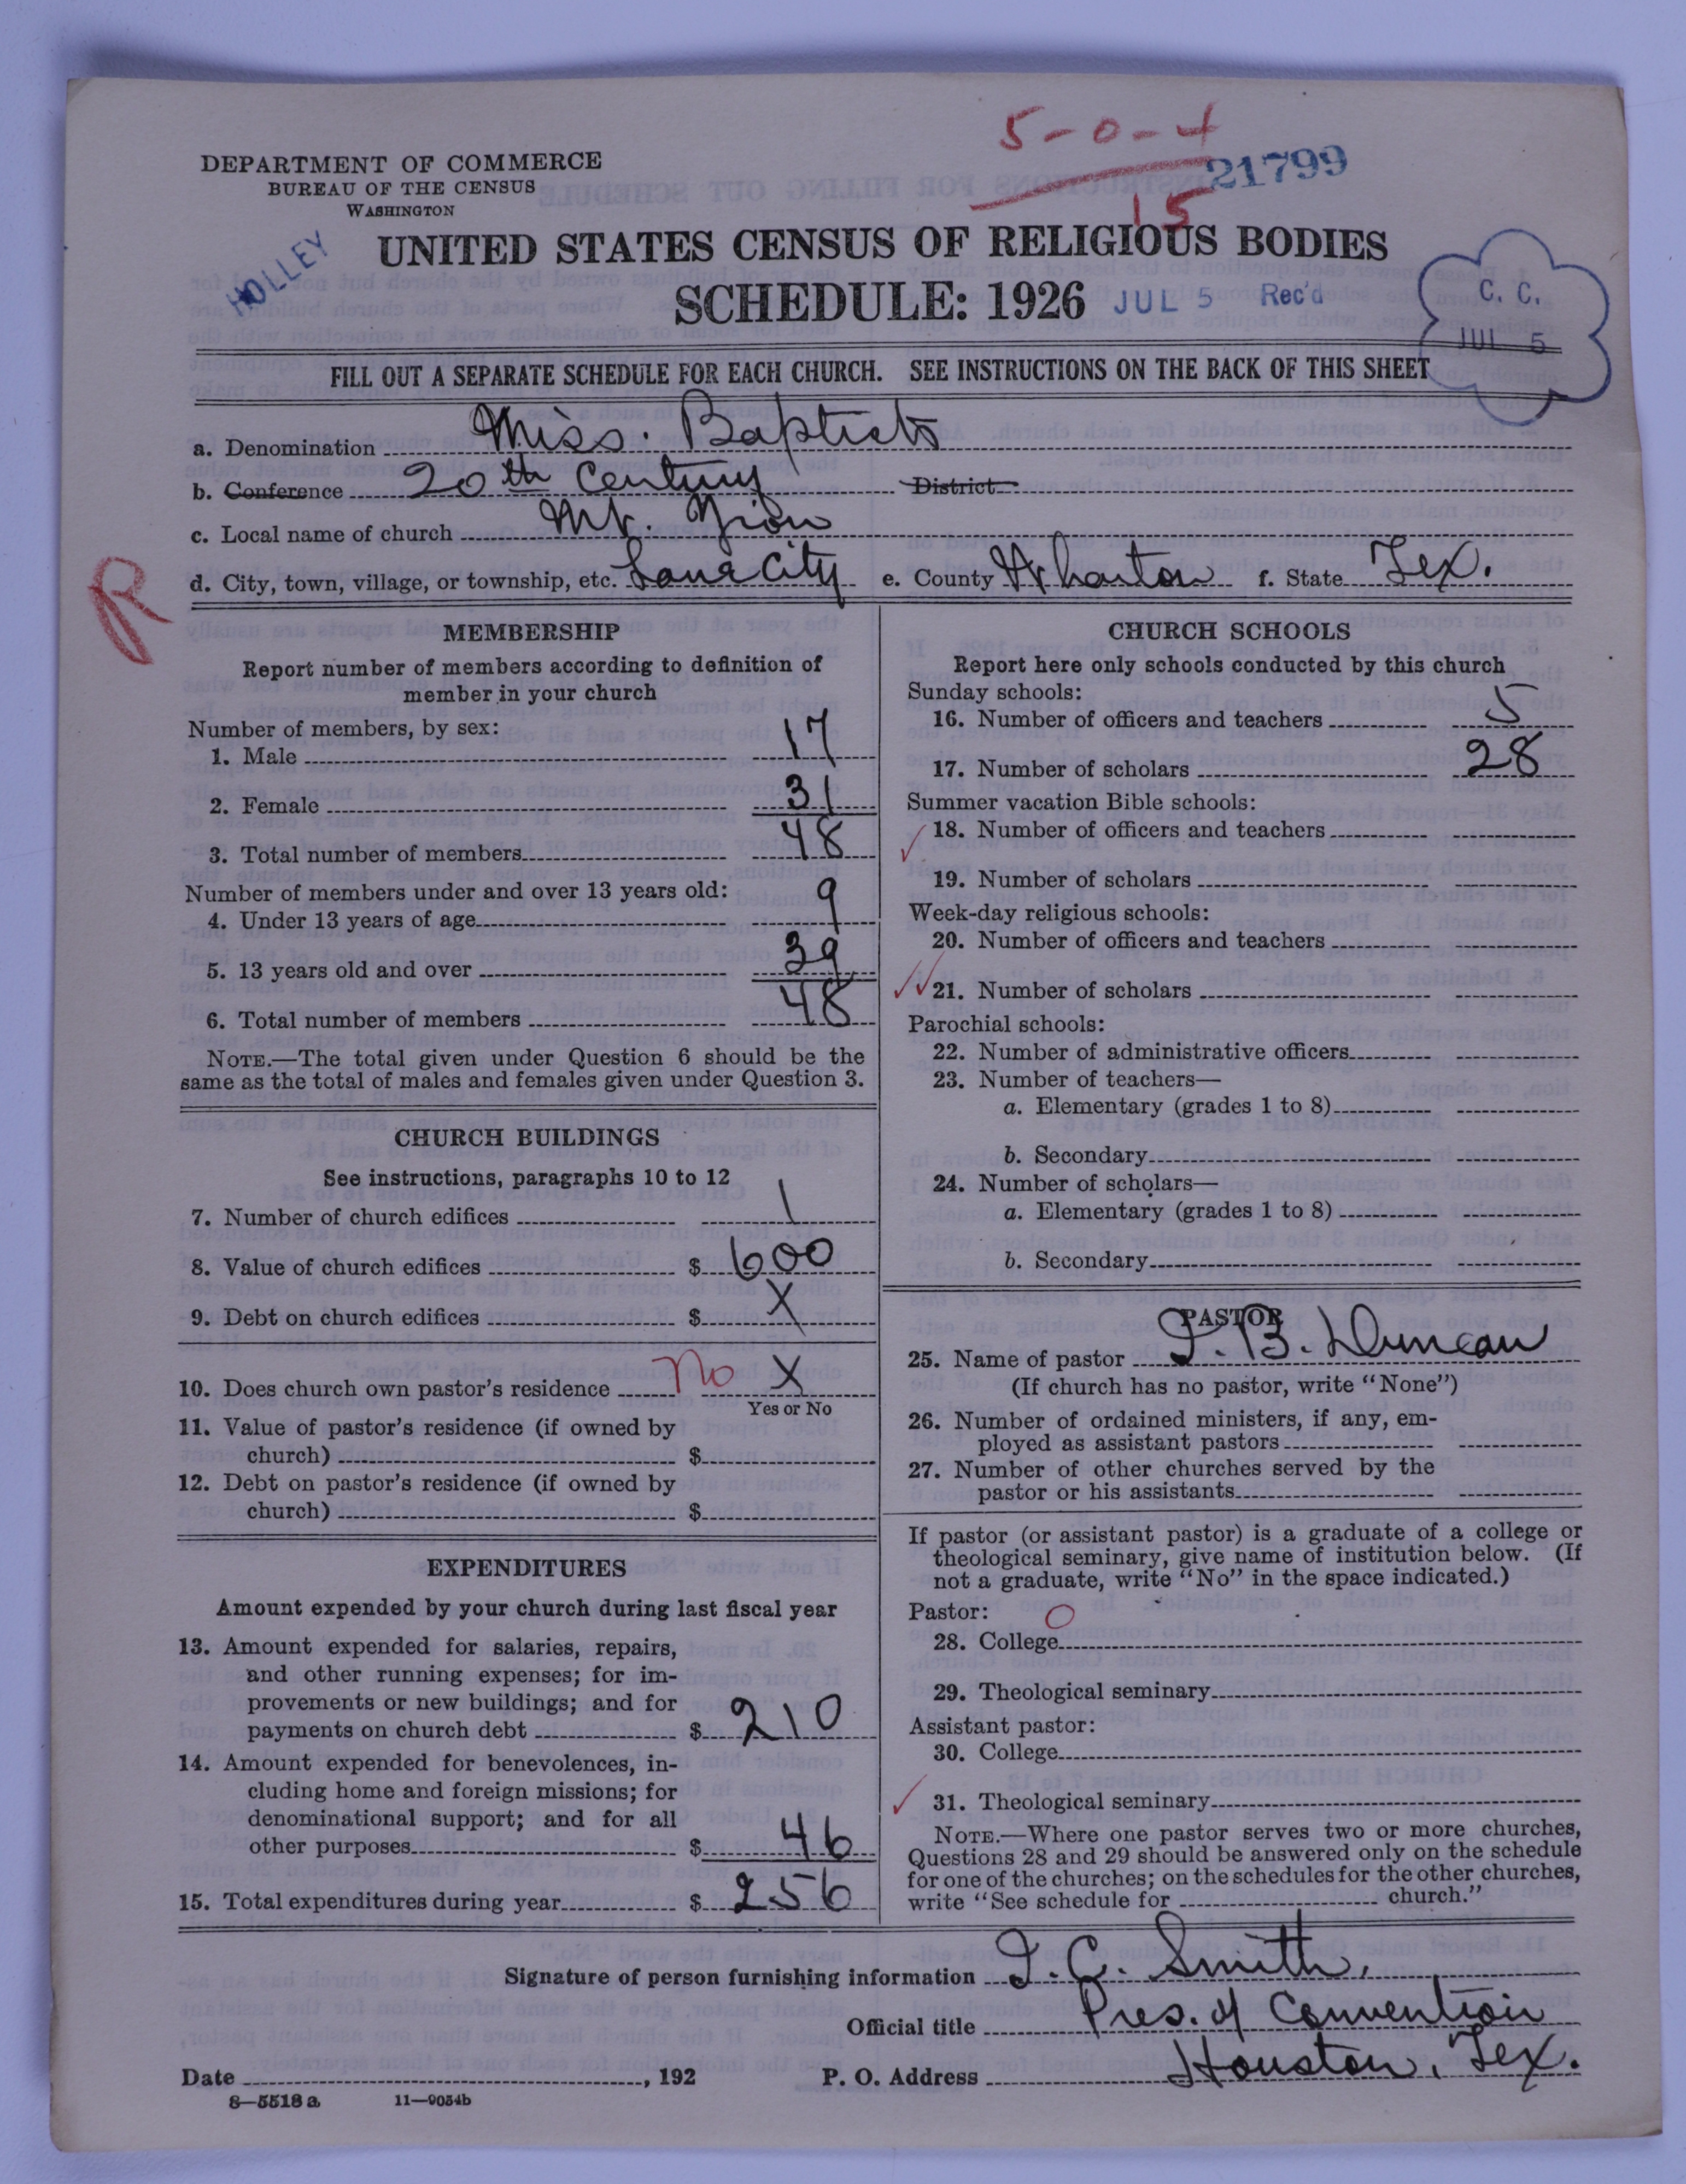 5-0-4
15
21799
DEPARTMENT OF COMMERCE
BUREAU OF THE CENSUS
WASHINGTON
HOLLEY
UNITED STATES CENSUS OF RELIGIOUS BODIES
SCHEDULE: 1926 JUL 5 Rec'd
C. C.
JUL 5
FILL OUT A SEPARATE SCHEDULE FOR EACH CHURCH. SEE INSTRUCTIONS ON THE BACK OF THIS SHEET
a. Denomination Miss. Baptists
b. Conference 20th Century District
c. Local name of church Mt. Zion
d. City, town, village, or township, etc. Lane City e. County Wharton f. State Tex.
R
MEMBERSHIP
Report number of members according to definition of
member in your church
Number of members, by sex:
1. Male 17
2. Female 31
3. Total number of members 48
Number of members under and over 13 years old:
4. Under 13 years of age 9
5. 13 years old and over 39
6. Total number of members 48
NOTE.—The total given under Question 6 should be the
same as the total of males and females given under Question 3.
CHURCH BUILDINGS
See instructions, paragraphs 10 to 12
7. Number of church edifices 1
8. Value of church edifices $ 600
9. Debt on church edifices $ X
10. Does church own pastor's residence No X
Yes or No
11. Value of pastor's residence (if owned by
church) $
12. Debt on pastor's residence (if owned by
church) $
EXPENDITURES
Amount expended by your church during last fiscal year
13. Amount expended for salaries, repairs,
and other running expenses; for im-
provements or new buildings; and for
payments on church debt $ 210
14. Amount expended for benevolences, in-
cluding home and foreign missions; for
denominational support; and for all
other purposes $ 46
15. Total expenditures during year $ 256
CHURCH SCHOOLS
Report here only schools conducted by this church
Sunday schools:
16. Number of officers and teachers 5
17. Number of scholars 28
Summer vacation Bible schools:
18. Number of officers and teachers
19. Number of scholars
Week-day religious schools:
20. Number of officers and teachers
21. Number of scholars
Parochial schools:
22. Number of administrative officers
23. Number of teachers—
a. Elementary (grades 1 to 8)
b. Secondary
24. Number of scholars—
a. Elementary (grades 1 to 8)
b. Secondary
PASTOR
25. Name of pastor I. B. Duncan
(If church has no pastor, write "None")
26. Number of ordained ministers, if any, em-
ployed as assistant pastors
27. Number of other churches served by the
pastor or his assistants
If pastor (or assistant pastor) is a graduate of a college or
theological seminary, give name of institution below. (If
not a graduate, write "No" in the space indicated.)
Pastor: O
28. College
29. Theological seminary
Assistant pastor:
30. College
31. Theological seminary
NOTE.—Where one pastor serves two or more churches,
Questions 28 and 29 should be answered only on the schedule
for one of the churches; on the schedules for the other churches,
write "See schedule for church."
Signature of person furnishing information J. C. Smith,
Official title Pres. of Convention
Date , 192 P. O. Address Houston, Tex.
8—5518 a 11—9054b